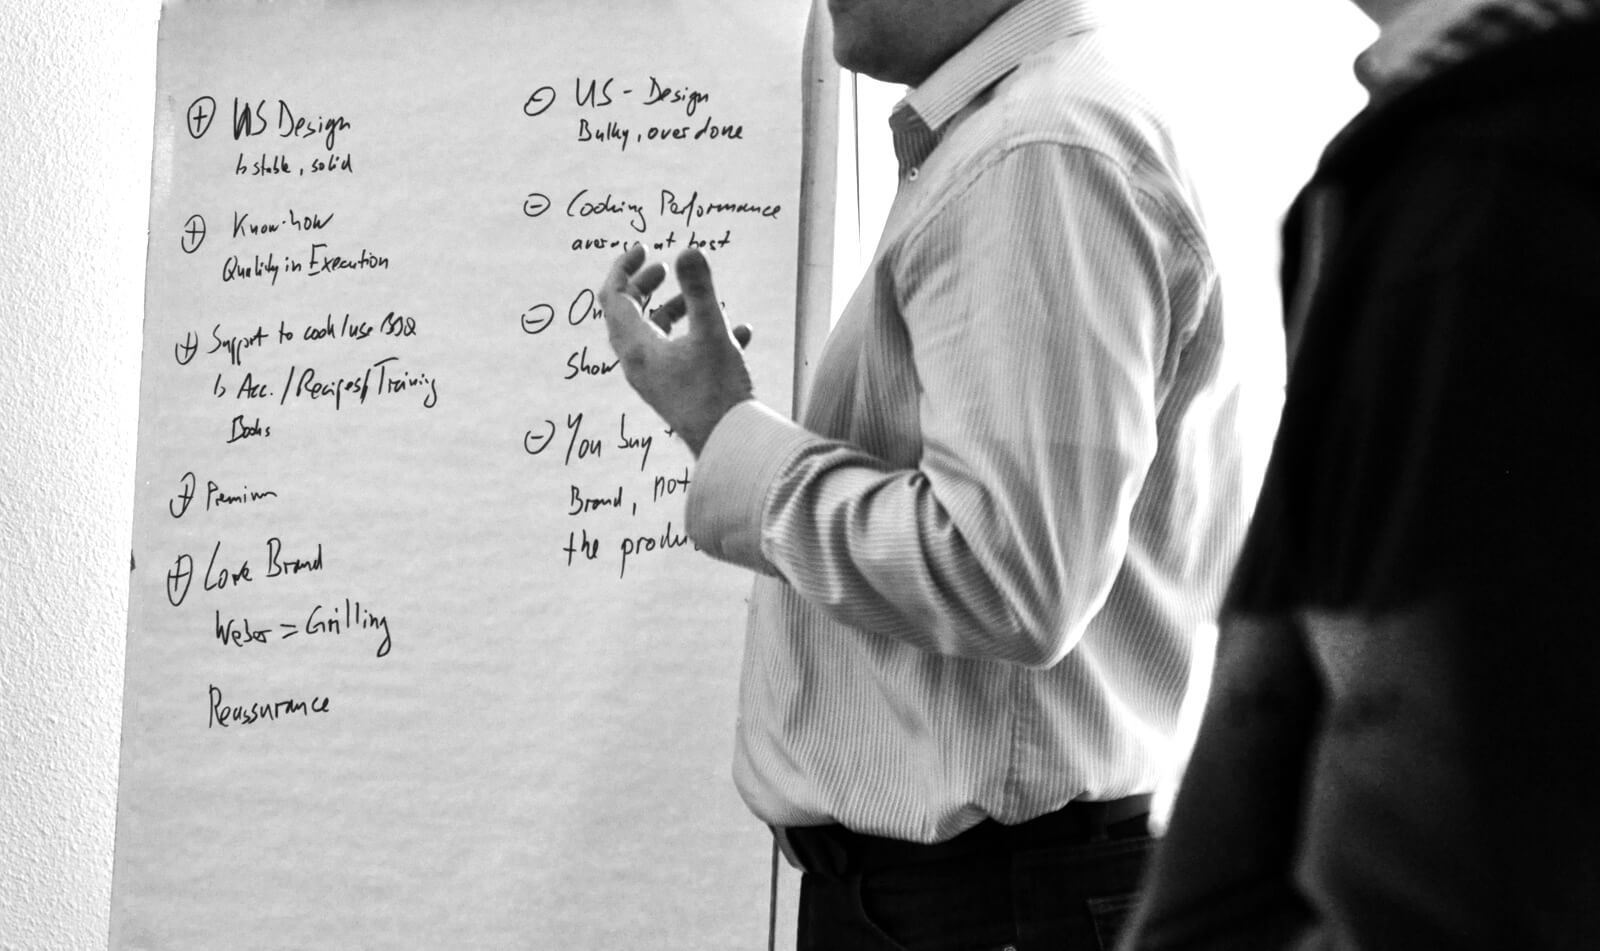 ⊕ US Design
↳ stable, solid
⊕ Know-how
Quality in Execution
⊕ Support to cook/use BBQ
↳ Acc./Recipes/Training
Books
⊕ Premium
⊕ Love Brand
Weber = Grilling
Reassurance
⊖ US - Design
Bulky, over done
⊖ Cooking Performance
average at best
⊖
Show
⊖ You buy
Brand, not
the product